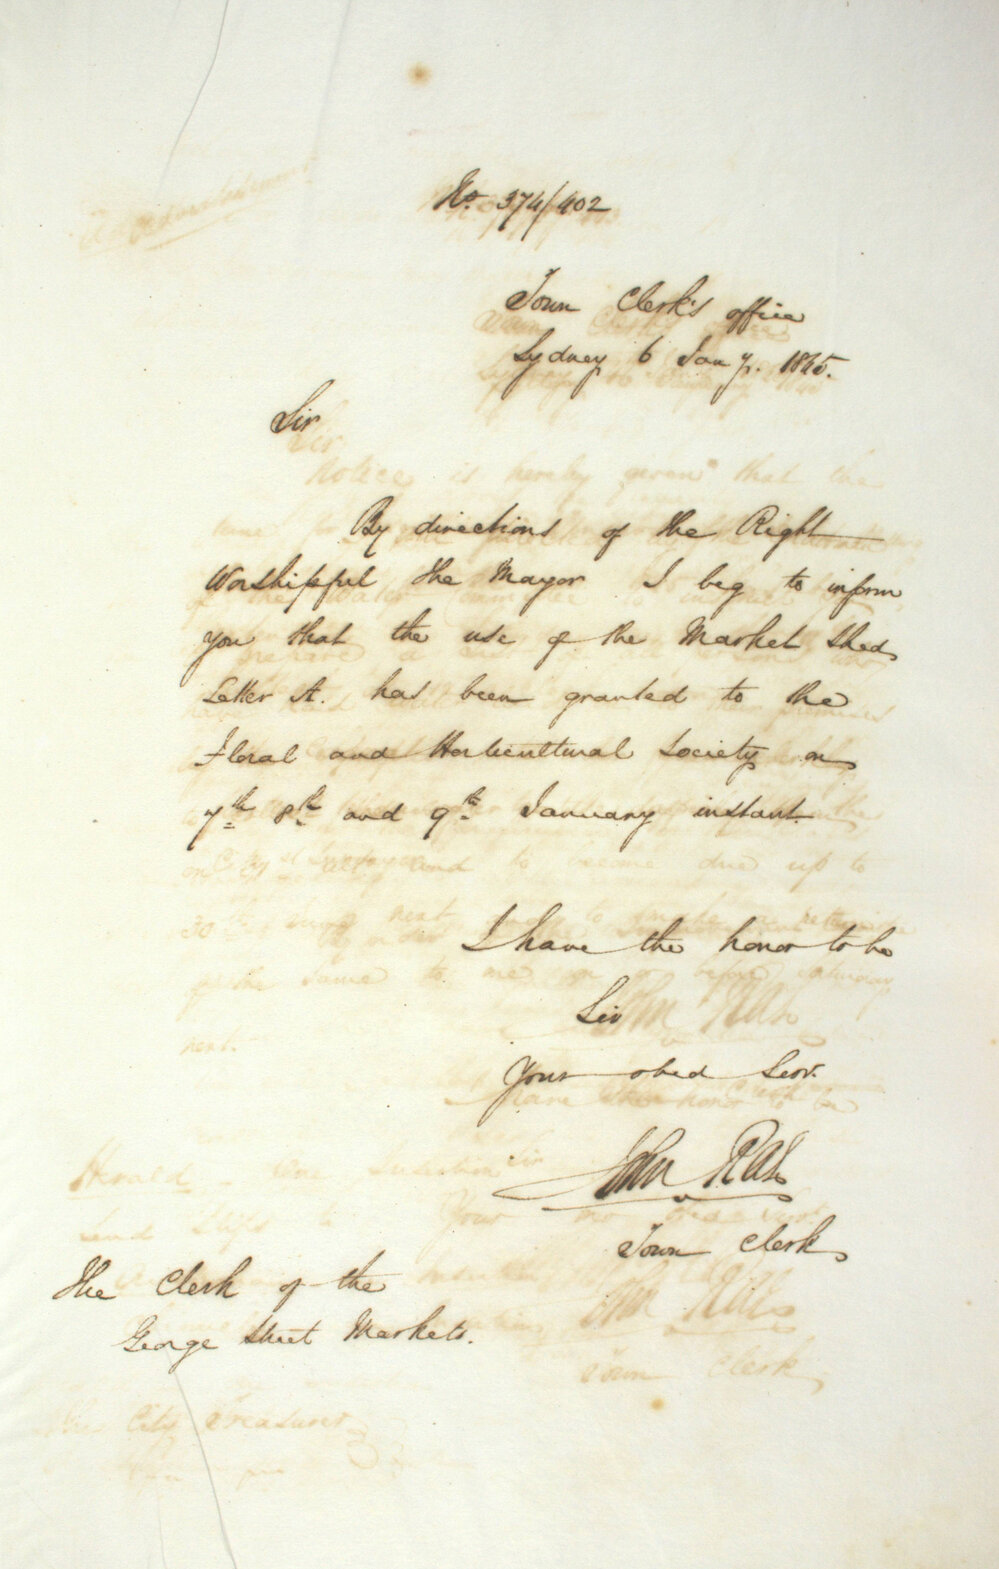 No. 374/402
Town Clerk's office
Sydney 6 Jany. 1845.
Sir
By directions of the Right
Worshipful the Mayor I beg to inform
you that the use of the Market Shed
Letter A. has been granted to the
Floral and Horticultural Society on
7th 8th and 9th January instant.
I have the honor to be
Sir
Your obed Serv.
John Rae
Town Clerk
The Clerk of the
George Street Markets.